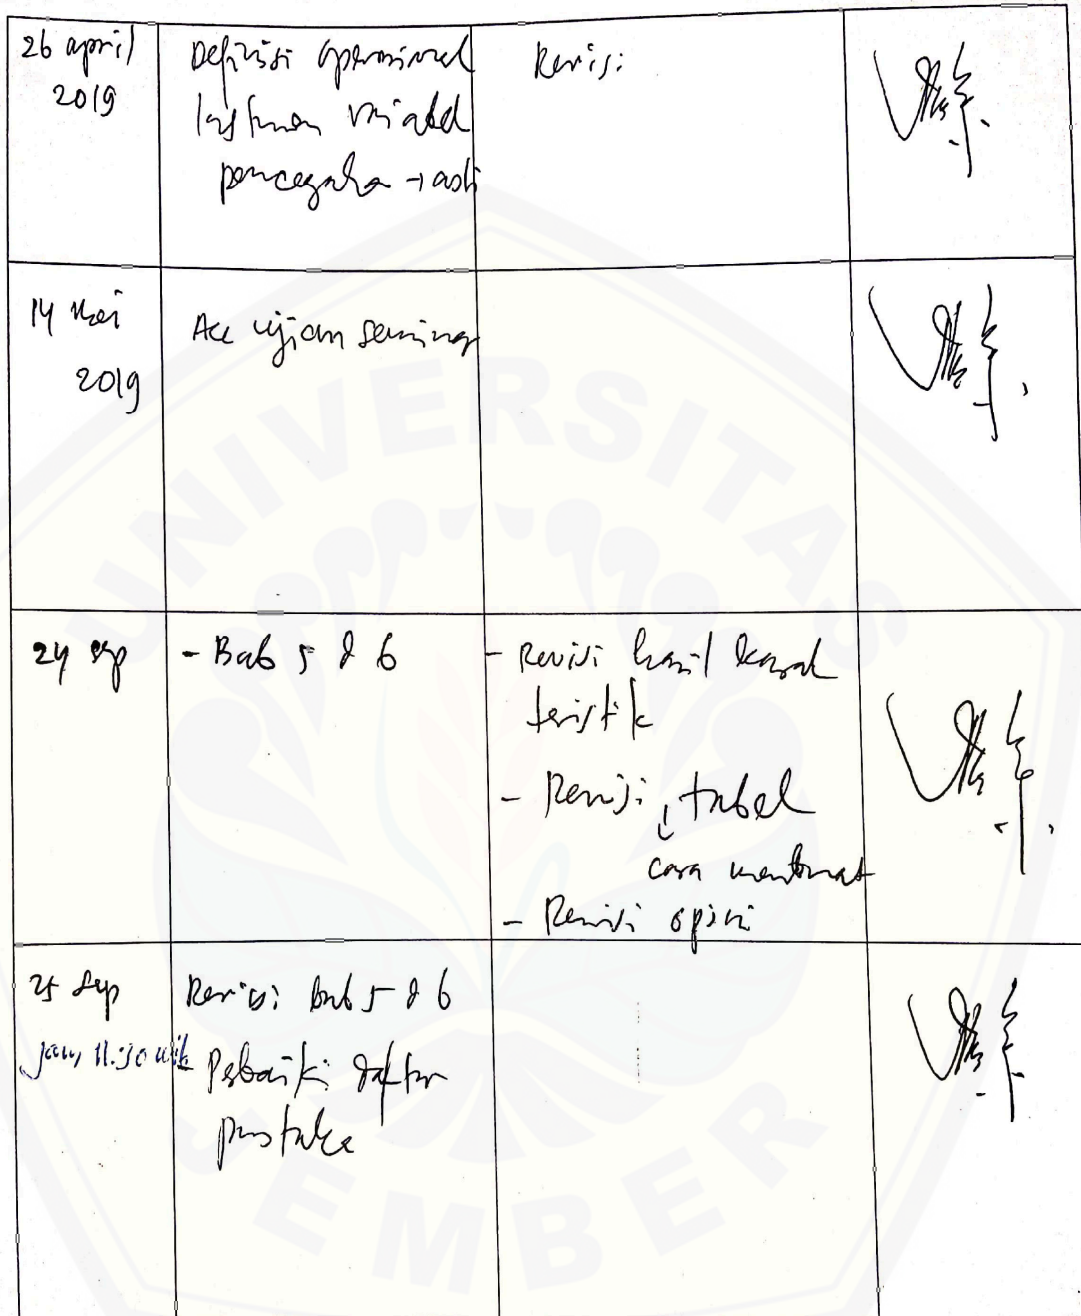 26 april
2019
Definisi operasional
variabel
pencegahan → asli
Revisi
14 Mei
2019
Acc ujian seminar
24 sep
- Bab 5 & 6
- Revisi hasil karak
teristik
- Revisi tabel
cara membuat
- Revisi opini
25 Sep
jam 11.30 wib
Revisi bab 5 & 6
Perbaiki daftar
pustaka
UNIVERSITAS
JEMBER